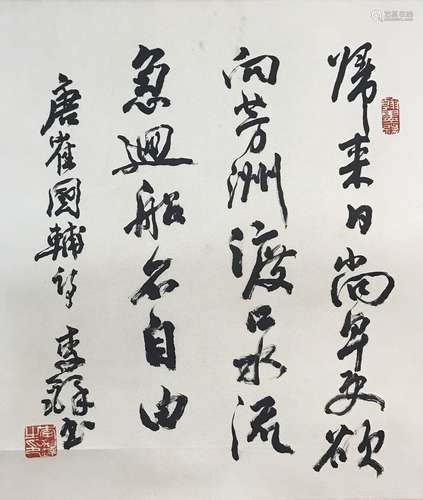 帰来日尚早更欲
向芳洲渡口水流
急迴船不自由
唐崔國輔詩 李鐸书